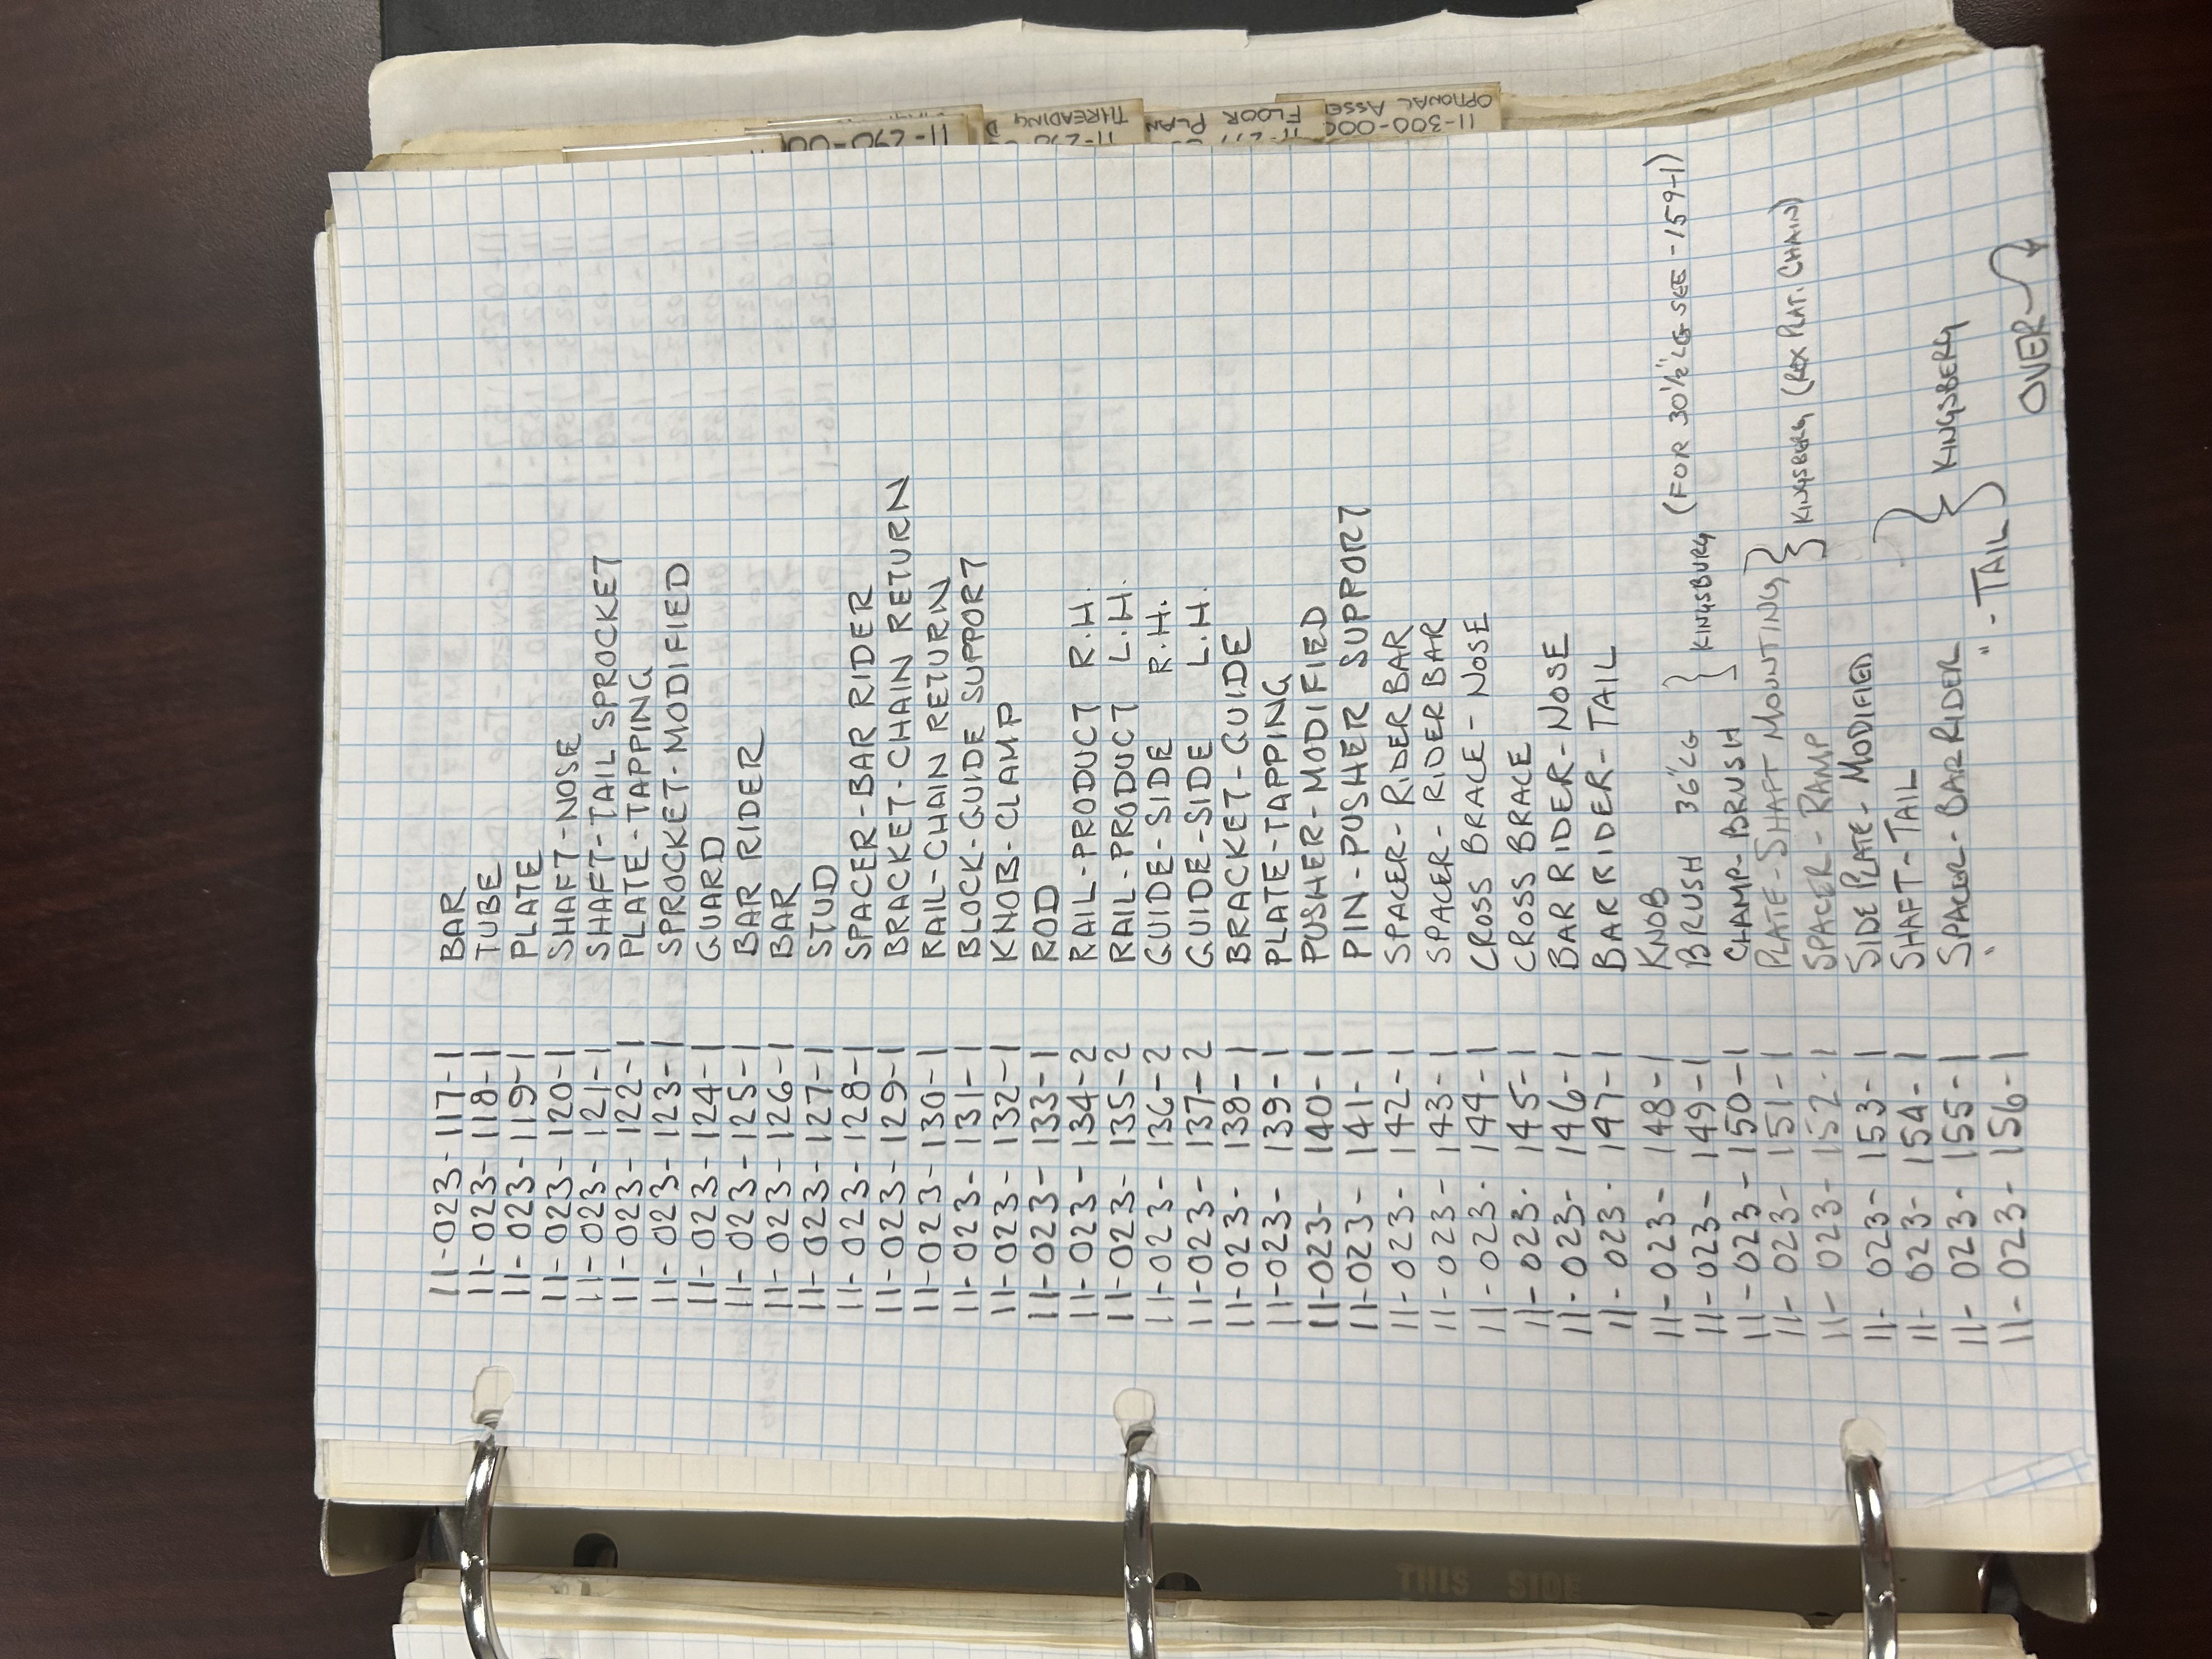 11-023-117-1 BAR
11-023-118-1 TUBE
11-023-119-1 PLATE
11-023-120-1 SHAFT-NOSE
11-023-121-1 SHAFT-TAIL SPROCKET
11-023-122-1 PLATE-TAPPING
11-023-123-1 SPROCKET-MODIFIED
11-023-124-1 GUARD
11-023-125-1 BAR RIDER
11-023-126-1 BAR
11-023-127-1 STUD
11-023-128-1 SPACER-BAR RIDER
11-023-129-1 BRACKET-CHAIN RETURN
11-023-130-1 RAIL-CHAIN RETURN
11-023-131-1 BLOCK-GUIDE SUPPORT
11-023-132-1 KNOB-CLAMP
11-023-133-1 ROD
11-023-134-2 RAIL-PRODUCT R.H.
11-023-135-2 RAIL-PRODUCT L.H.
11-023-136-2 GUIDE-SIDE R.H.
11-023-137-2 GUIDE-SIDE L.H.
11-023-138-1 BRACKET-GUIDE
11-023-139-1 PLATE-TAPPING
11-023-140-1 PUSHER-MODIFIED
11-023-141-1 PIN-PUSHER SUPPORT
11-023-142-1 SPACER-RIDER BAR
11-023-143-1 SPACER-RIDER BAR
11-023-144-1 CROSS BRACE-NOSE
11-023-145-1 CROSS BRACE
11-023-146-1 BAR RIDER-NOSE
11-023-147-1 BAR RIDER-TAIL
11-023-148-1 KNOB
11-023-149-1 BRUSH 36" LG } KINGSBURG (FOR 30 1/2" LG SEE -159-1)
11-023-150-1 CLAMP-BRUSH
11-023-151-1 PLATE-SHAFT MOUNTING } KINGSBERG (REX PLAT. CHAIN)
11-023-152-1 SPACER-RAMP
11-023-153-1 SIDE PLATE-MODIFIED
11-023-154-1 SHAFT-TAIL
11-023-155-1 SPACER-BAR RIDER } KINGSBERG
11-023-156-1 " " -TAIL
OVER
THREADING
FLOOR PLAN
11-300-000
OPTIONAL
THIS SIDE